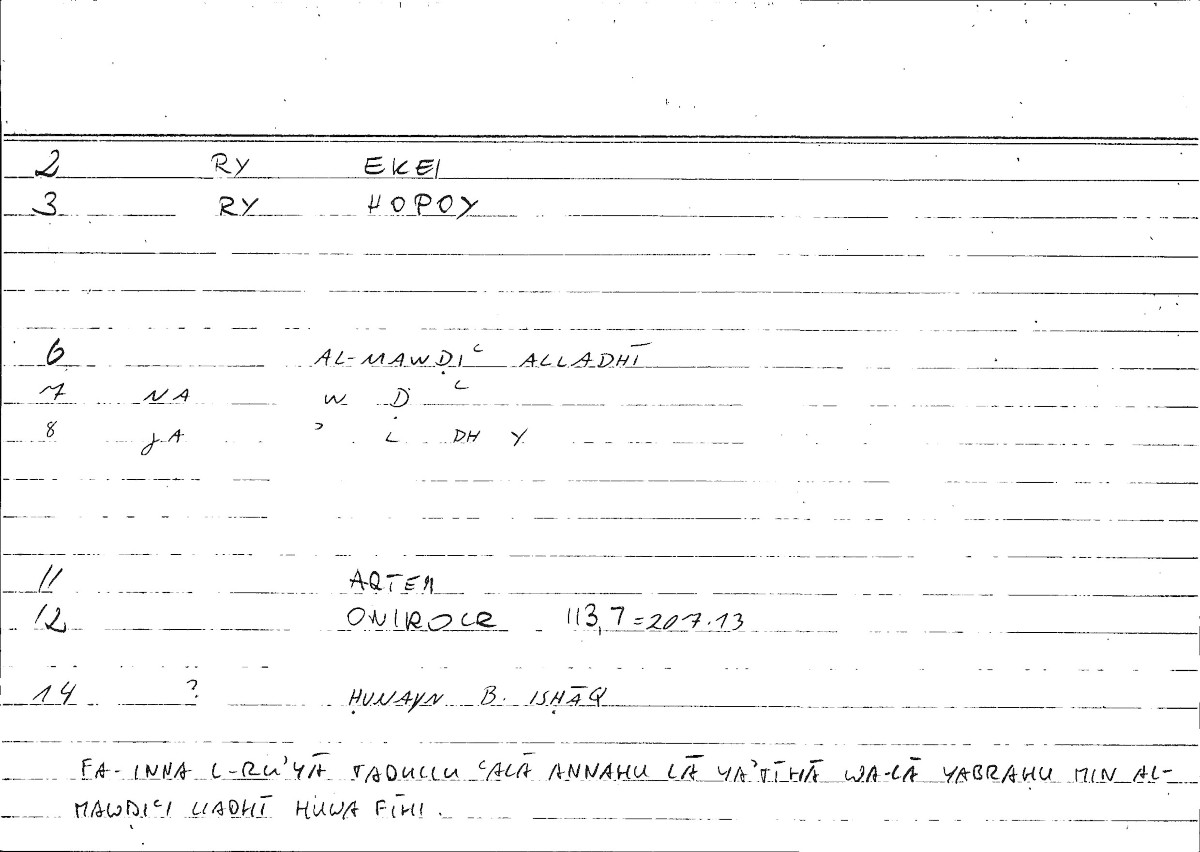 2 RY EKEI
3 RY HOPOY
6 AL-MAWḌIʿ ALLADHĪ
7 NA W Ḍ ʿ
8 JA ʾ L DH Y
11 ARTEM
12 ONIROCR 113,7=207.13
14 ? ḤUNAYN B. ISḤĀQ
FA-INNA L-RUʾYĀ TADULLU ʿALĀ ANNAHU LĀ YAʾTĪHĀ WA-LĀ YABRAHU MIN AL-
MAWḌIʿI LLADHĪ HUWA FĪHI.